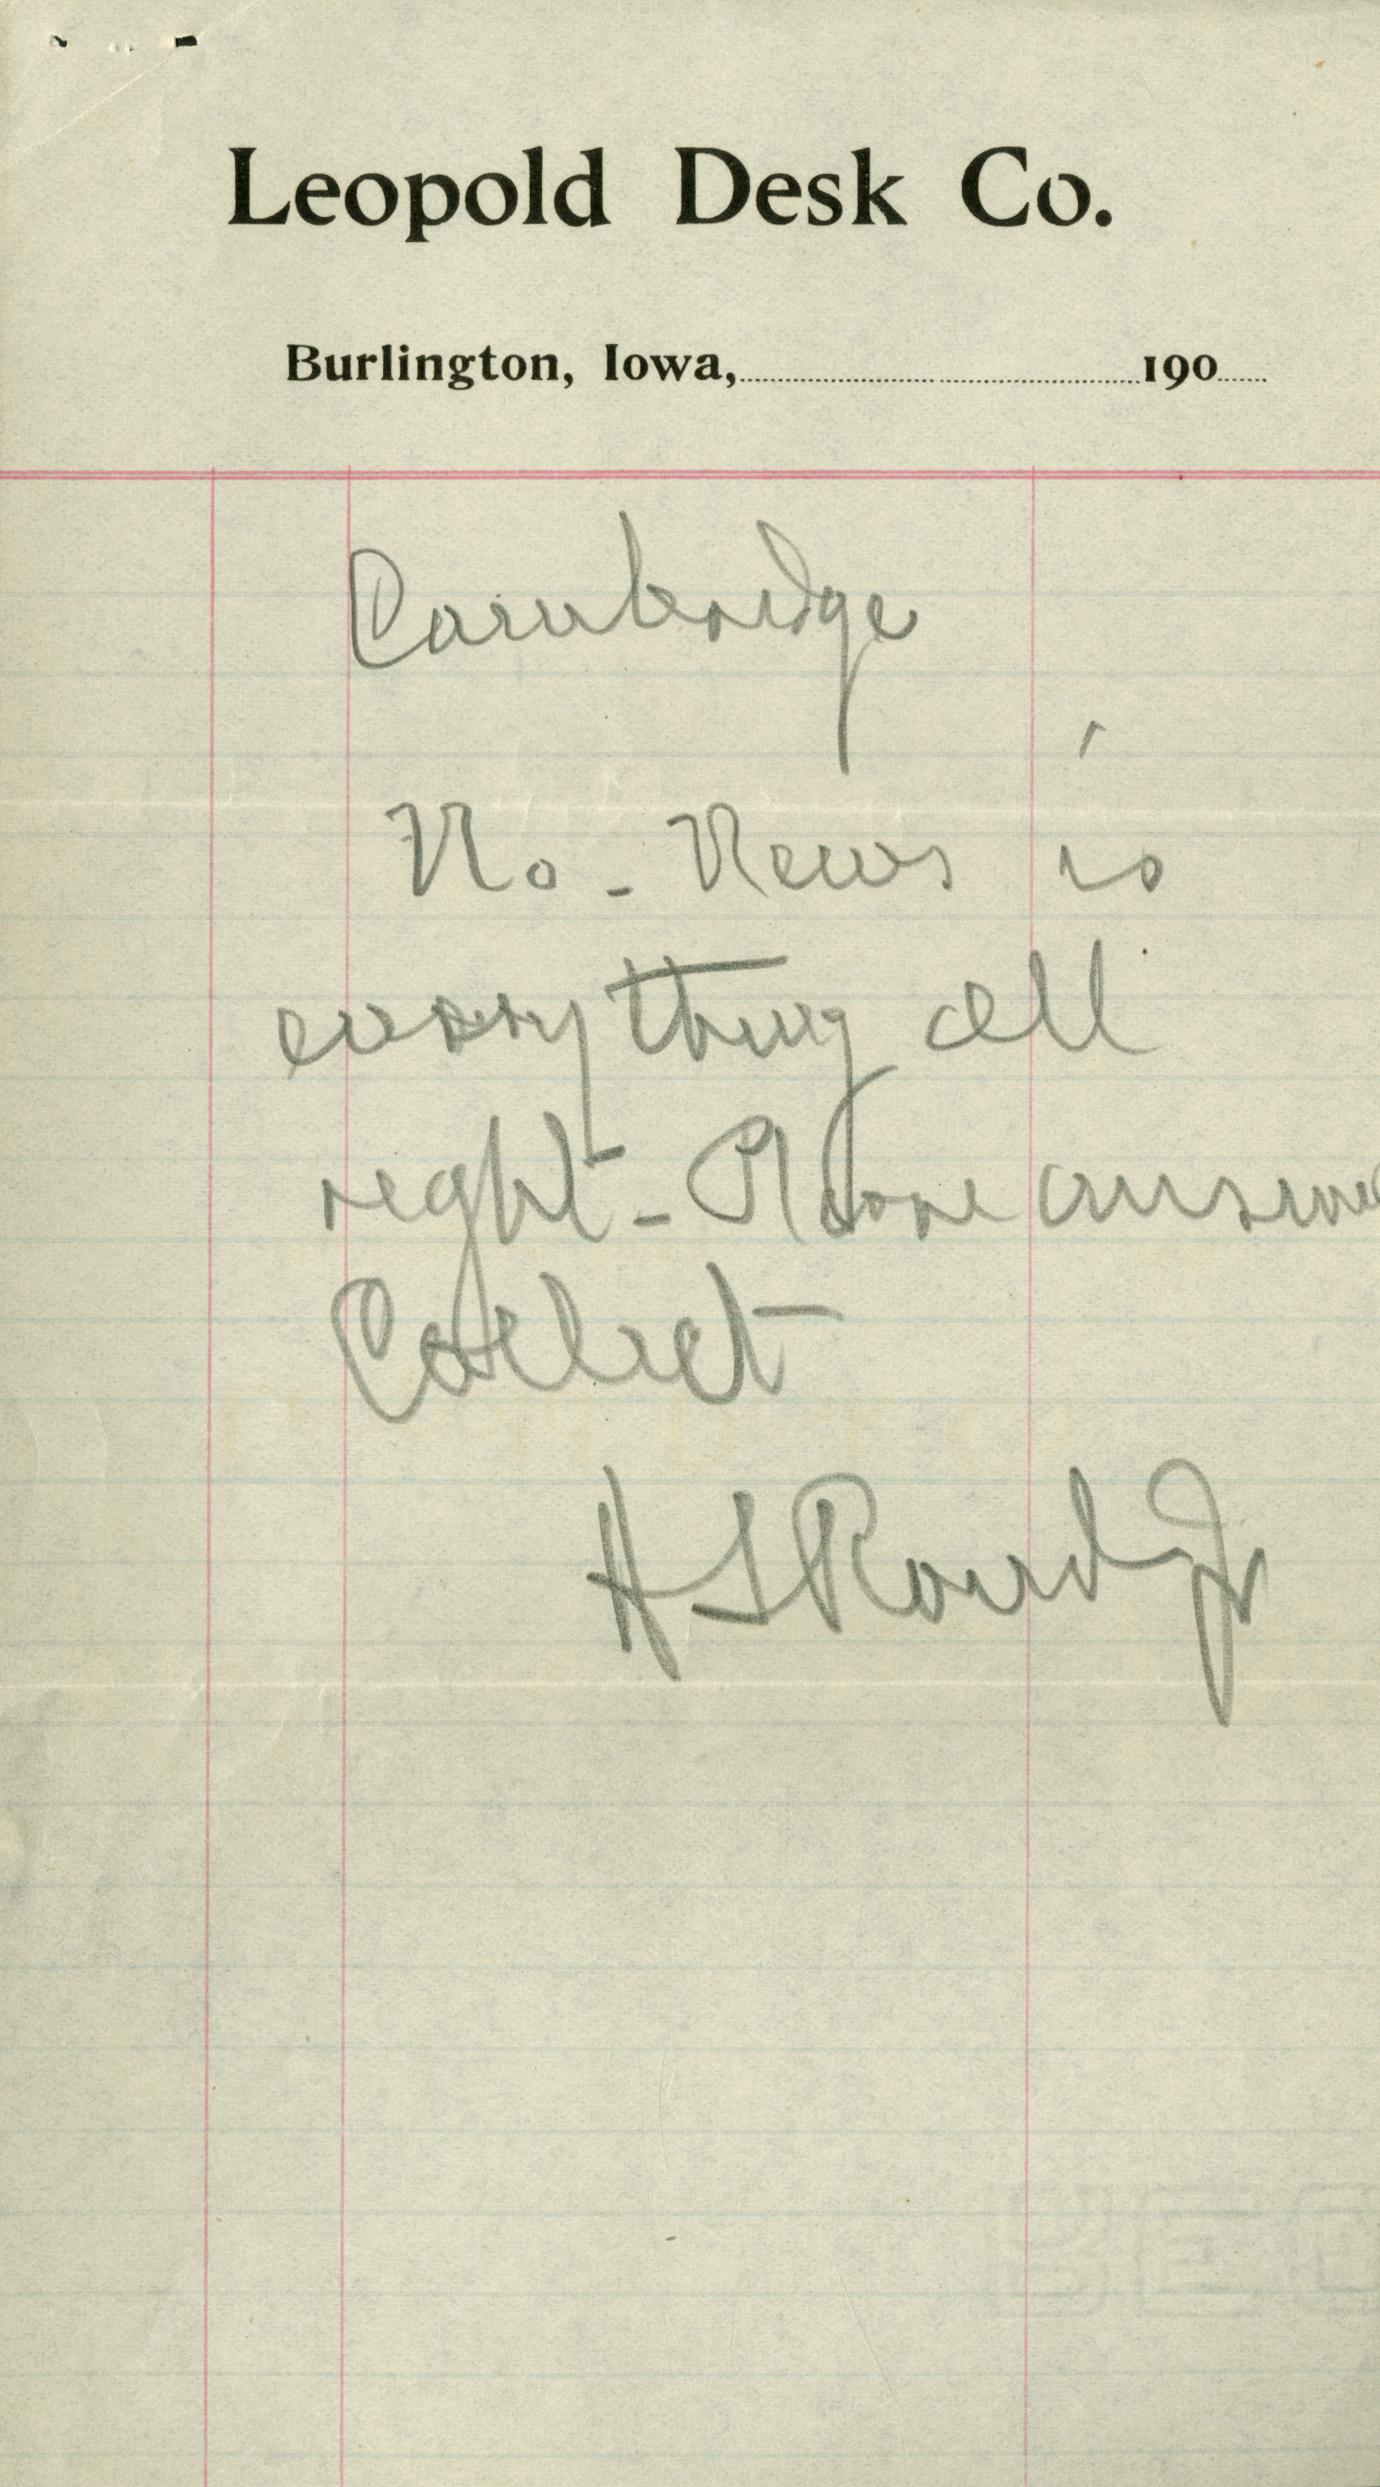 Leopold Desk Co.
Burlington, Iowa, 190
Cambridge
No - News is
everything all
right - Please answer
Collect
H S Rand Jr